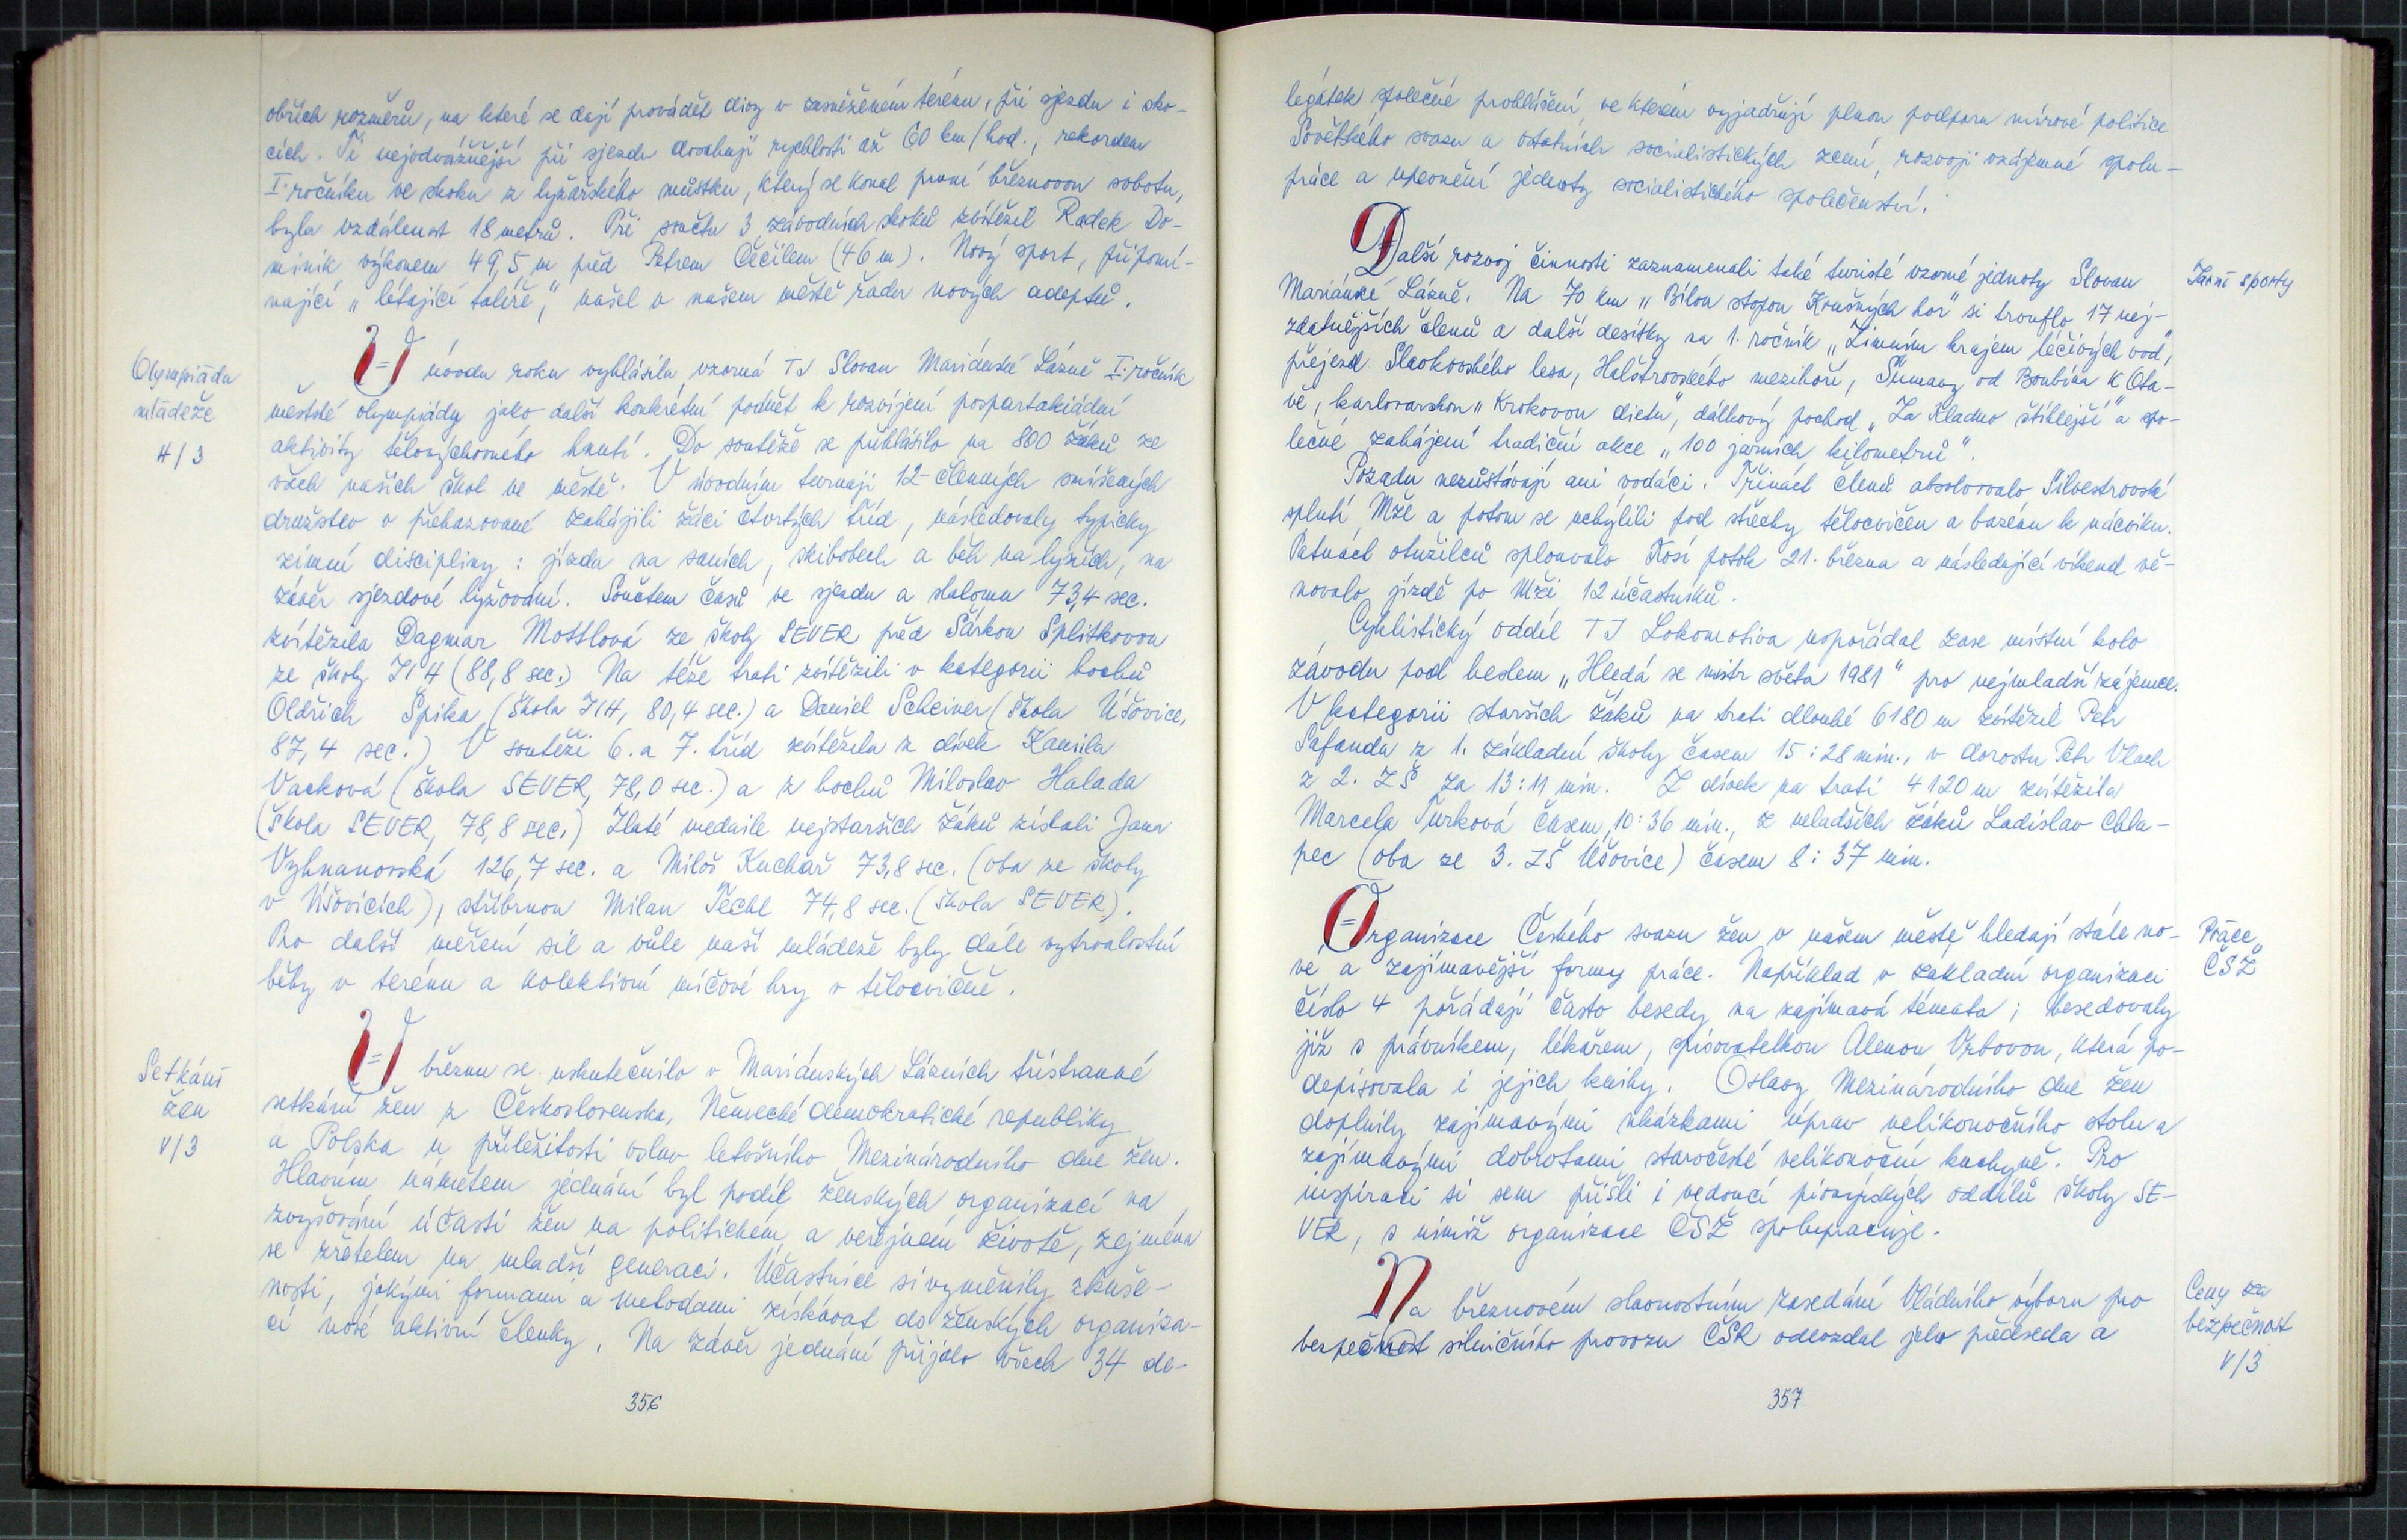 obřích rozměrů, na které se dají provádět divy v zasněženém terénu, při sjezdu i sko-
cích. Ti nejodvážnější při sjezdu dosahují rychlosti až 60 km/hod., rekordem
I. ročníku ve skoku z lyžařského můstku, který se konal první březnovou sobotu,
byla vzdálenost 18 metrů. Při součtu 3 závodních skoků zvítězil Radek Do-
minik výkonem 49,5 m před Petrem Čečilem (46 m). Nový sport, připomí-
nající „létající talíře," našel v našem městě řadu nových adeptů.
Olympiáda
mládeže
H/3
V úvodu roku vyhlásila vzorná TJ Slovan Mariánské Lázně I. ročník
městské olympiády jako další konkrétní podnět k rozvíjení pospartakiádní
aktivity tělovýchovného hnutí. Do soutěže se přihlásilo na 800 žáků ze
všech našich škol ve městě. V úvodním turnaji 12-členných smíšených
družstev v přehazované zahájili žáci čtvrtých tříd, následovaly typicky
zimní disciplíny: jízda na saních, skibobech a běh na lyžích, na
závěr sjezdové lyžování. Součtem časů ve sjezdu a slalomu 73,4 sec.
zvítězila Dagmar Mottlová ze školy SEVER před Šárkou Splítkovou
ze školy JIH (88,8 sec.) Na téže trati zvítězili v kategorii hochů
Oldřich Špika (škola JIH, 80,4 sec.) a Daniel Scheiner (škola Úšovice,
87,4 sec.) V soutěži 6. a 7. tříd zvítězila z dívek Kamila
Vacková (škola SEVER, 78,0 sec.) a z hochů Miloslav Halada
(škola SEVER, 78,8 sec.) Zlaté medaile nejstarších žáků získali Jana
Vyhnanovská 126,7 sec. a Miloš Kuchař 73,8 sec. (oba ze školy
v Úšovicích), stříbrnou Milan Techl 74,8 sec. (škola SEVER).
Pro další měření sil a vůle naší mládeže byly dále vytrvalostní
běhy v terénu a kolektivní míčové hry v tělocvičně.
Setkání
žen
V/3
V březnu se uskutečnilo v Mariánských Lázních třístranné
setkání žen z Československa, Německé demokratické republiky
a Polska u příležitosti oslav letošního Mezinárodního dne žen.
Hlavním námětem jednání byl podíl ženských organizací na
zvyšování účasti žen na politickém a veřejném životě, zejména
se zřetelem na mladší generaci. Účastnice si vyměnily zkuše-
nosti, jakými formami a metodami získávat do ženských organiza-
cí nové aktivní členky. Na závěr jednání přijalo všech 34 de-
356
legátek společné prohlášení, ve kterém vyjadřují plnou podporu mírové politice
Sovětského svazu a ostatních socialistických zemí, rozvoji vzájemné spolu-
práce a upevnění jednoty socialistického společenství.
Jarní sporty
Další rozvoj činnosti zaznamenali také turisté vzorné jednoty Slovan
Mariánské Lázně. Na 70 km „Bílou stopou Krušných hor" si trouflo 17 nej-
zdatnějších členů a další desítky na 1. ročník „Zimním krajem léčivých vod",
přejezd Slavkovského lesa, Halštrovského mezihoří, Šumavy od Boubína k Ota-
vě, karlovarskou „Krokovou dietu", dálkový pochod „Za Kladno štíhlejší" a spo-
lečné zahájení tradiční akce „100 jarních kilometrů".
Pozadu nezůstávají ani vodáci. Třináct členů absolvovalo Silvestrovské
splutí Mže a potom se uchýlili pod střechy tělocvičen a bazénu k nácviku.
Patnáct otužilců splouvalo Kosí potok 21. března a následující víkend vě-
novalo jízdě po Mži 12 účastníků.
Cyklistický oddíl TJ Lokomotiva uspořádal zase místní kolo
závodu pod heslem „Hledá se mistr světa 1981" pro nejmladší zájemce.
V kategorii starších žáků na trati dlouhé 6180 m zvítězil Petr
Šafanda z 1. základní školy časem 15:28 min., v dorostu Petr Vlach
z 2. ZŠ za 13:11 min. Z dívek na trati 4120 m zvítězila
Marcela Turková časem 10:36 min., z mladších žáků Ladislav Chla-
pec (oba ze 3. ZŠ Úšovice) časem 8:37 min.
Práce
ČSŽ
Organizace Českého svazu žen v našem městě hledají stále no-
vé a zajímavější formy práce. Například v základní organizaci
číslo 4 pořádají často besedy na zajímavá témata; besedovaly
již s právníkem, lékařem, spisovatelkou Alenou Vrbovou, která po-
depisovala i jejich knihy. Oslavy Mezinárodního dne žen
doplnily zajímavými ukázkami úprav velikonočního stolu a
zajímavými dobrotami staročeské velikonoční kuchyně. Pro
inspiraci si sem přišli i vedoucí pionýrských oddílů školy SE-
VER, s nimiž organizace ČSŽ spolupracuje.
Ceny za
bezpečnost
V/3
Na březnovém slavnostním zasedání Vládního výboru pro
bezpečnost silničního provozu ČSR odevzdal jeho předseda a
357